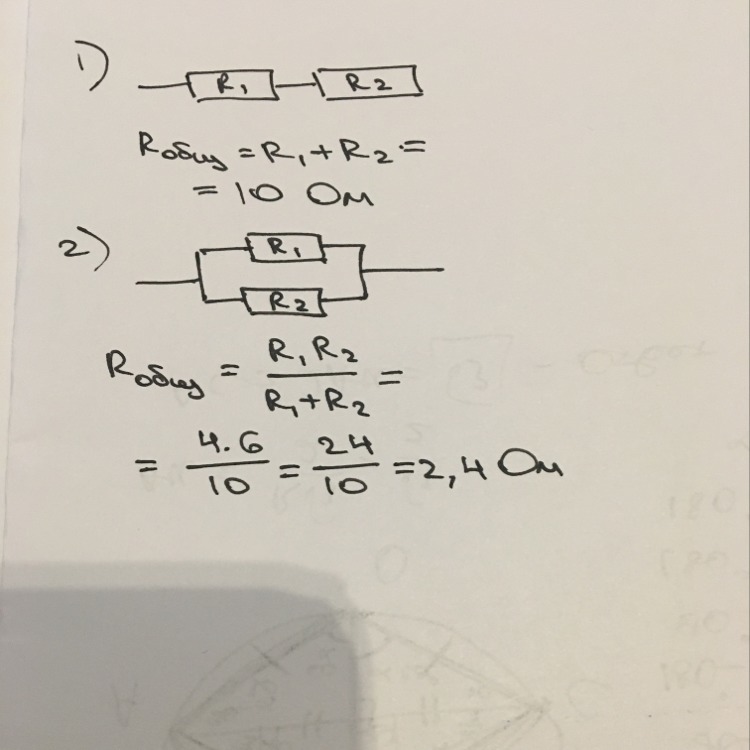 1)
R₁ R₂
Rобщ = R₁ + R₂ =
= 10 Ом
2)
R₁
R₂
Rобщ = R₁R₂ / R₁+R₂ =
= 4·6 / 10 = 24 / 10 = 2,4 Ом
180